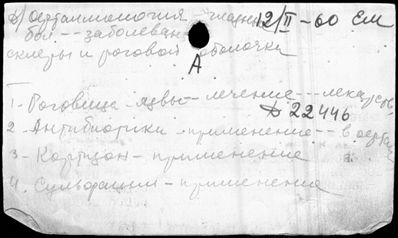 в) Офтальмология - глазн 12/II - 60 ЕМ
бол. -- заболеван
склеры и роговой оболочки
А
1. Роговица - язвы - лечение -- лекарств.
Д 22446
2. Антибиотики - применение -- в офтал
3 - Кортизон - применение
4. Сульфацил - применение